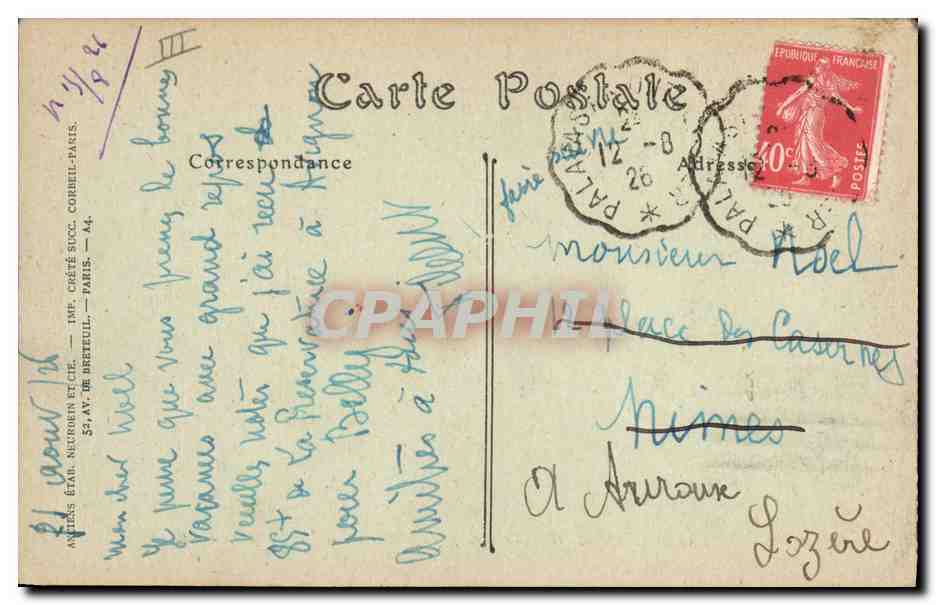 Carte Postale
Correspondance
Adresse
RÉPUBLIQUE FRANÇAISE
40c
POSTES
PALAVAS
12 -8
26
ANCIENS ÉTAB. NEURDEIN ET CIE. — IMP. CRÉTÉ SUCC. CORBEIL-PARIS.
52, AV. DE BRETEUIL, — PARIS. — A4.
III
août 26
mon cher Noel
je pense que vous prenez de bonnes
vacances avec grand repos
veuillez noter que j'ai reçu
85+ de La à Avignon
pour
amitiés à tous
faire suivre
Monsieur Noel
12 place des Casernes
Nimes
A
Lozère
CPAPHIL